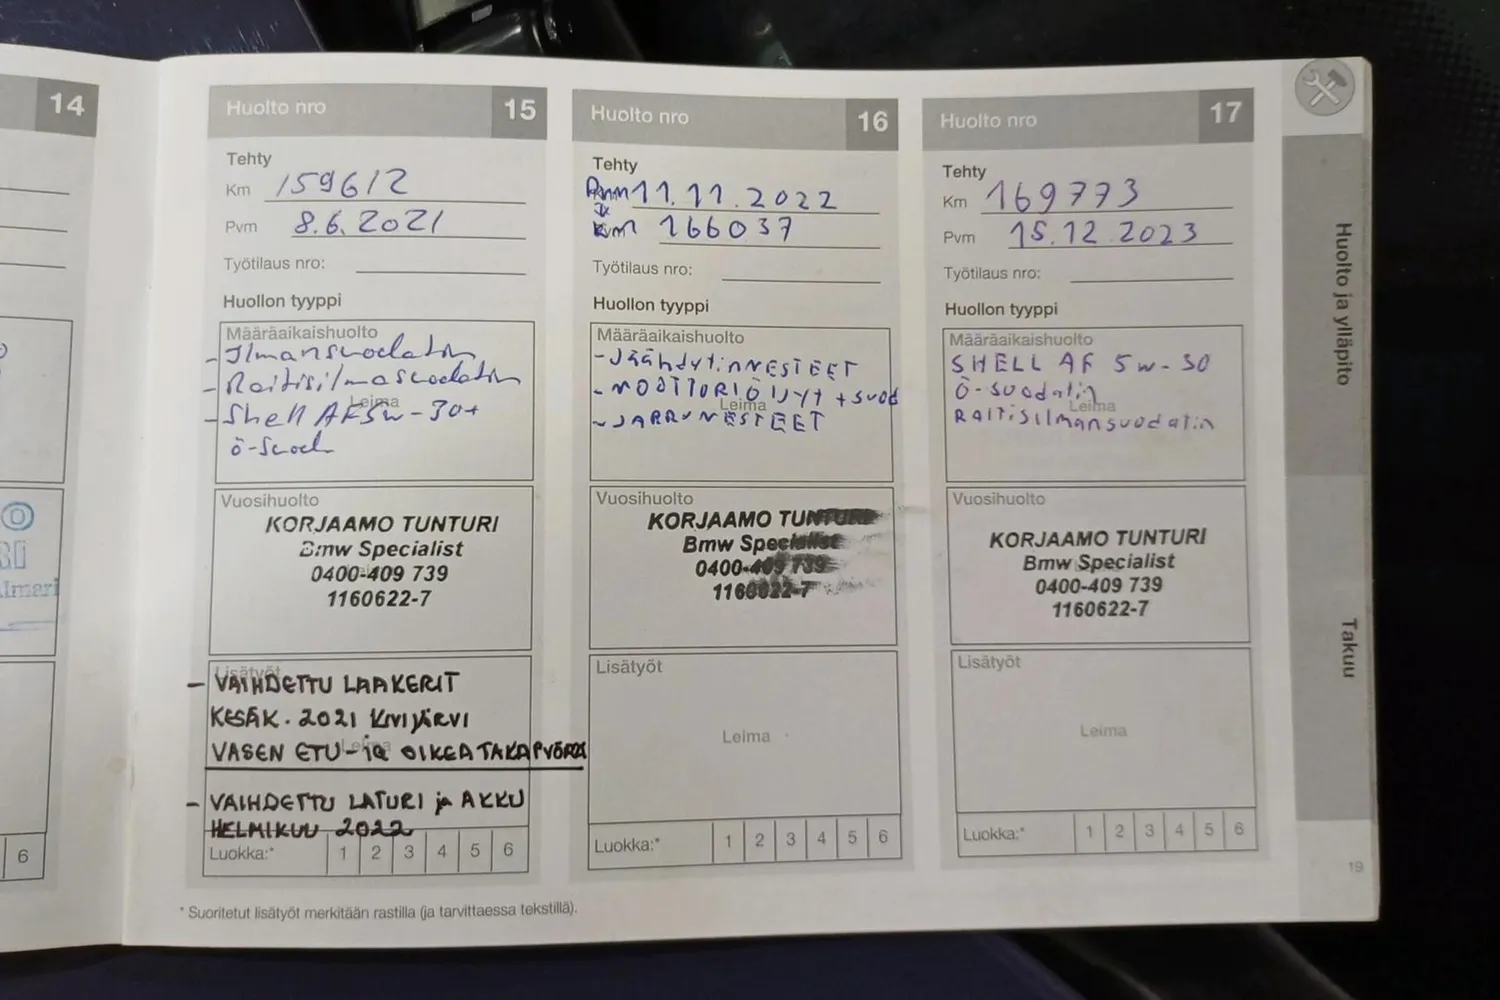 14
6
Huolto nro 15
Tehty
Km 159612
Pvm 8.6.2021
Työtilaus nro:
Huollon tyyppi
Määräaikaishuolto
- Ilmansuodatin
- Raitisilmasuodatin
Leima
- Shell AF5w-30+
ö-suod
Vuosihuolto
KORJAAMO TUNTURI
Bmw Specialist
0400-409 739
1160622-7
Lisätyöt
- VAIHDETTU LAAKERIT
KESÄK. 2021 KIVIJÄRVI
Leima
VASEN ETU- ja OIKEA TAKAPYÖRÄ
- VAIHDETTU LATURI ja AKKU
HELMIKUU 2022
Luokka:* 1 2 3 4 5 6
Huolto nro 16
Tehty
Pvm 11.11.2022
Km 166037
Työtilaus nro:
Huollon tyyppi
Määräaikaishuolto
- Jäähdytinnesteet
- MOOTTORIÖLJYT + SUOD
Leima
- JARRUNESTEET
Vuosihuolto
KORJAAMO TUNTURI
Bmw Specialist
0400-409 739
1160622-7
Lisätyöt
Leima
Luokka:* 1 2 3 4 5 6
Huolto nro 17
Tehty
Km 169773
Pvm 15.12.2023
Työtilaus nro:
Huollon tyyppi
Määräaikaishuolto
SHELL AF 5w-30
Ö-suodatin
Leima
RAITISILMANSUODATIN
Vuosihuolto
KORJAAMO TUNTURI
Bmw Specialist
0400-409 739
1160622-7
Lisätyöt
Leima
Luokka:* 1 2 3 4 5 6
* Suoritetut lisätyöt merkitään rastilla (ja tarvittaessa tekstillä).
Huolto ja ylläpito
Takuu
19